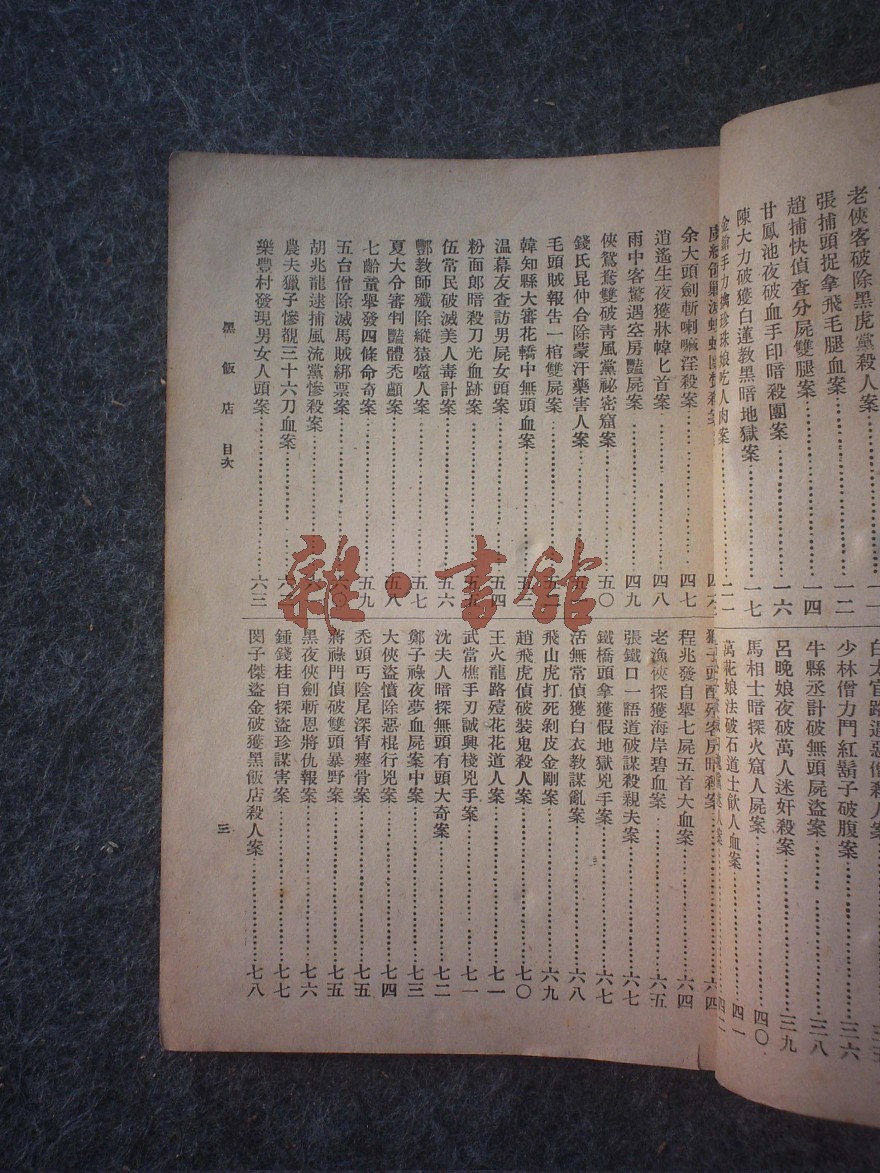 老俠客破除黑虎黨殺人案
張捕頭捉拿飛毛腿血案……一二
趙捕快偵查分屍雙腿案……一四
甘鳳池夜破血手印暗殺團案……一六
陳大力破獲白蓮教黑暗地獄案……一七
珍珠娘吃人肉案
少林僧力鬥紅鬍子破腹案……三六
牛縣丞計破無頭屍盜案……三八
呂晚娘夜破萬人迷奸殺案……三九
馬相士暗探火窟人屍案……四〇
萬花娘法破石道士飲人血案……四一
余大頭劍斬喇嘛淫殺案……四七
逍遙生夜獲牀幃匕首案……四八
雨中客驚遇空房豔屍案……四九
俠鴛鴦雙破靑風黨祕密窟案……五〇
錢氏昆仲合除蒙汗藥害人案
毛頭賊報告一棺雙屍案
韓知縣大審花轎中無頭血案
溫幕友查訪男屍女頭案……五四
粉面郎暗殺刀光血跡案
伍常民破滅美人毒計案……五六
酆教師殲除縱猿噬人案……五七
夏大令審判豔體禿顱案……五八
七齡童舉發四條命奇案……五九
五台僧除滅馬賊綁票案……六〇
胡兆龍逮捕風流黨慘殺案
農夫獵子慘覩三十六刀血案
樂豐村發現男女人頭案……六三
程兆發自舉七屍五首大血案……六四
老漁俠探獲海岸碧血案……六五
張鐵口一語道破謀殺親夫案……六七
鐵橋頭拿獲假地獄兇手案……六七
活無常偵獲白衣教謀亂案……六八
飛山虎打死剝皮金剛案……六九
趙飛虎偵破裝鬼殺人案……七〇
王火龍路殪花花道人案……七一
武當樵手刃誠興棧兇手案……七一
沈夫人暗探無頭有頭大奇案……七二
鄭子祿夜夢血屍案中案……七三
大俠盜憤除惡棍行兇案……七四
禿頭丐陰尾深宵瘞骨案……七五
蔣祿門偵破雙頭暴野案……七五
黑夜俠劍斬恩將仇報案……七六
鍾錢桂目探盜珍謀害案……七七
閔子傑盜金破獲黑飯店殺人案……七八
黑飯店 目次
三
雜·書館